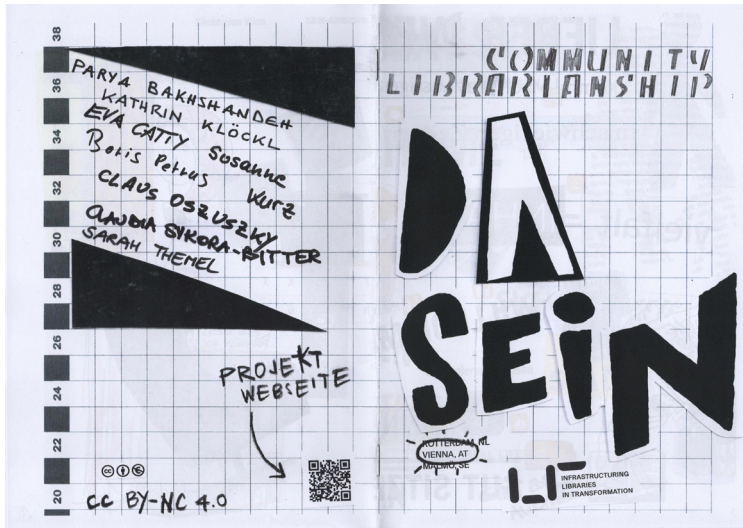 38
36
34
32
30
28
26
24
22
20
PARYA BAKHSHANDEH
KATHRIN KLÖCKL
EVA GATTY Susanne
Boris Petrus Kurz
CLAUS OSZUSZKY
CLAUDIA SYKORA-BITTER
SARAH THEMEL
PROJEKT
WEBSEITE
CC BY-NC 4.0
COMMUNITY
LIBRARIANSHIP
DA
SEIN
ROTTERDAM, NL
VIENNA, AT
MALMÖ, SE
INFRASTRUCTURING
LIBRARIES
IN TRANSFORMATION